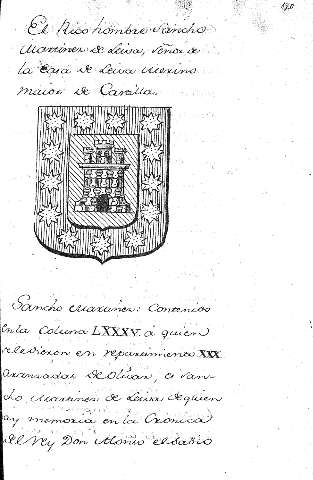 El Rico hombre Sancho
Martinez de Leiva, Señor de
la Casa de Leiva Merino
maior de Castilla.
Sancho Martinez: Contenido
en la Coluna LXXXV. a quien
le dieron en repartimiento XXX
aranzadas de Olivar, es San-
cho Martinez de Leiva de quien
ay memoria en la Cronica
del Rey Don Alonso el Sabio